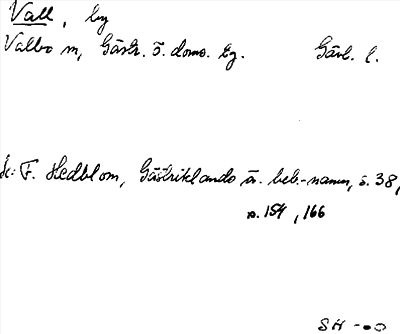 Vall, by
Valbo sn, Gästr. ö. doms. tg. Gävl. l.
Se: F. Hedblom, Gästriklands ä. beb.-namn, s. 38,
s. 154, 166
SH